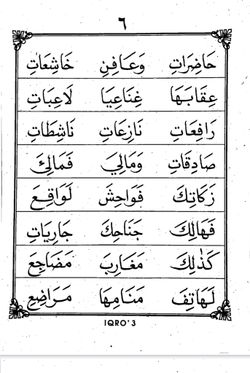 ٦
حَاضِرَاتِ وَعَافِنِ خَاشِعَاتِ
عِقَابَهَا غِنَاعِيَا لَاعِبَاتِ
رَافِعَاتِ نَازِعَاتِ نَاشِطَاتِ
صَادِقَاتِ وَمَالِيَ فَمَالِكَ
زَكَاتِكَ فَوَاحِشَ لَوَاقِعَ
فَهَالِكَ جَنَاحِكَ جَارِيَاتِ
كَذٰلِكَ مَغَارِبَ مَضَاجِعَ
لَهَاتِفَ مَنَامِهَا مَرَاضِعَ
IQRO' 3